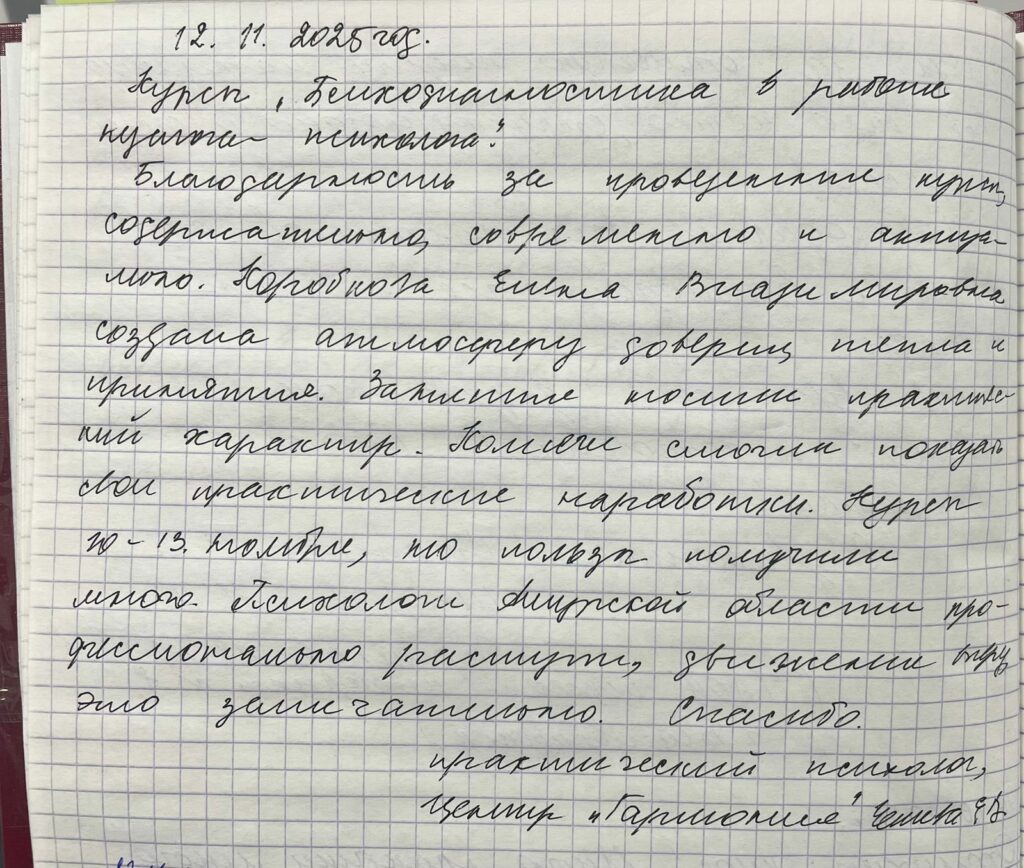 12. 11. 2025 год.
Курсы „Психодиагностика в работе
педагога- психолога".
Благодарность за проведение курсов,
содержательно, современно и актуа-
льно. Коробкова Елена Владимировна
создала атмосферу доверия, тепла и
принятия. Занятия носили практичес-
кий характер. Коллеги смогли показать
свои практические наработки. Курсы
10-13. ноября, но пользы получили
много. Психологи Амурской области про-
фессионально растут, движения вперед
это замечательно. Спасибо.
практический психолог,
Центр „Гармония"